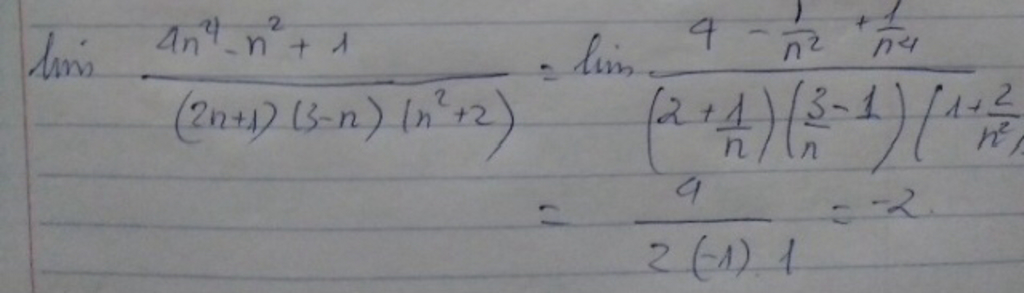 lim (4n⁴ - n² + 1) / ((2n+1)(3-n)(n²+2)) = lim (4 - 1/n² + 1/n⁴) / ((2 + 1/n)(3/n - 1)(1 + 2/n²)
= 4 / (2(-1).1) = -2.